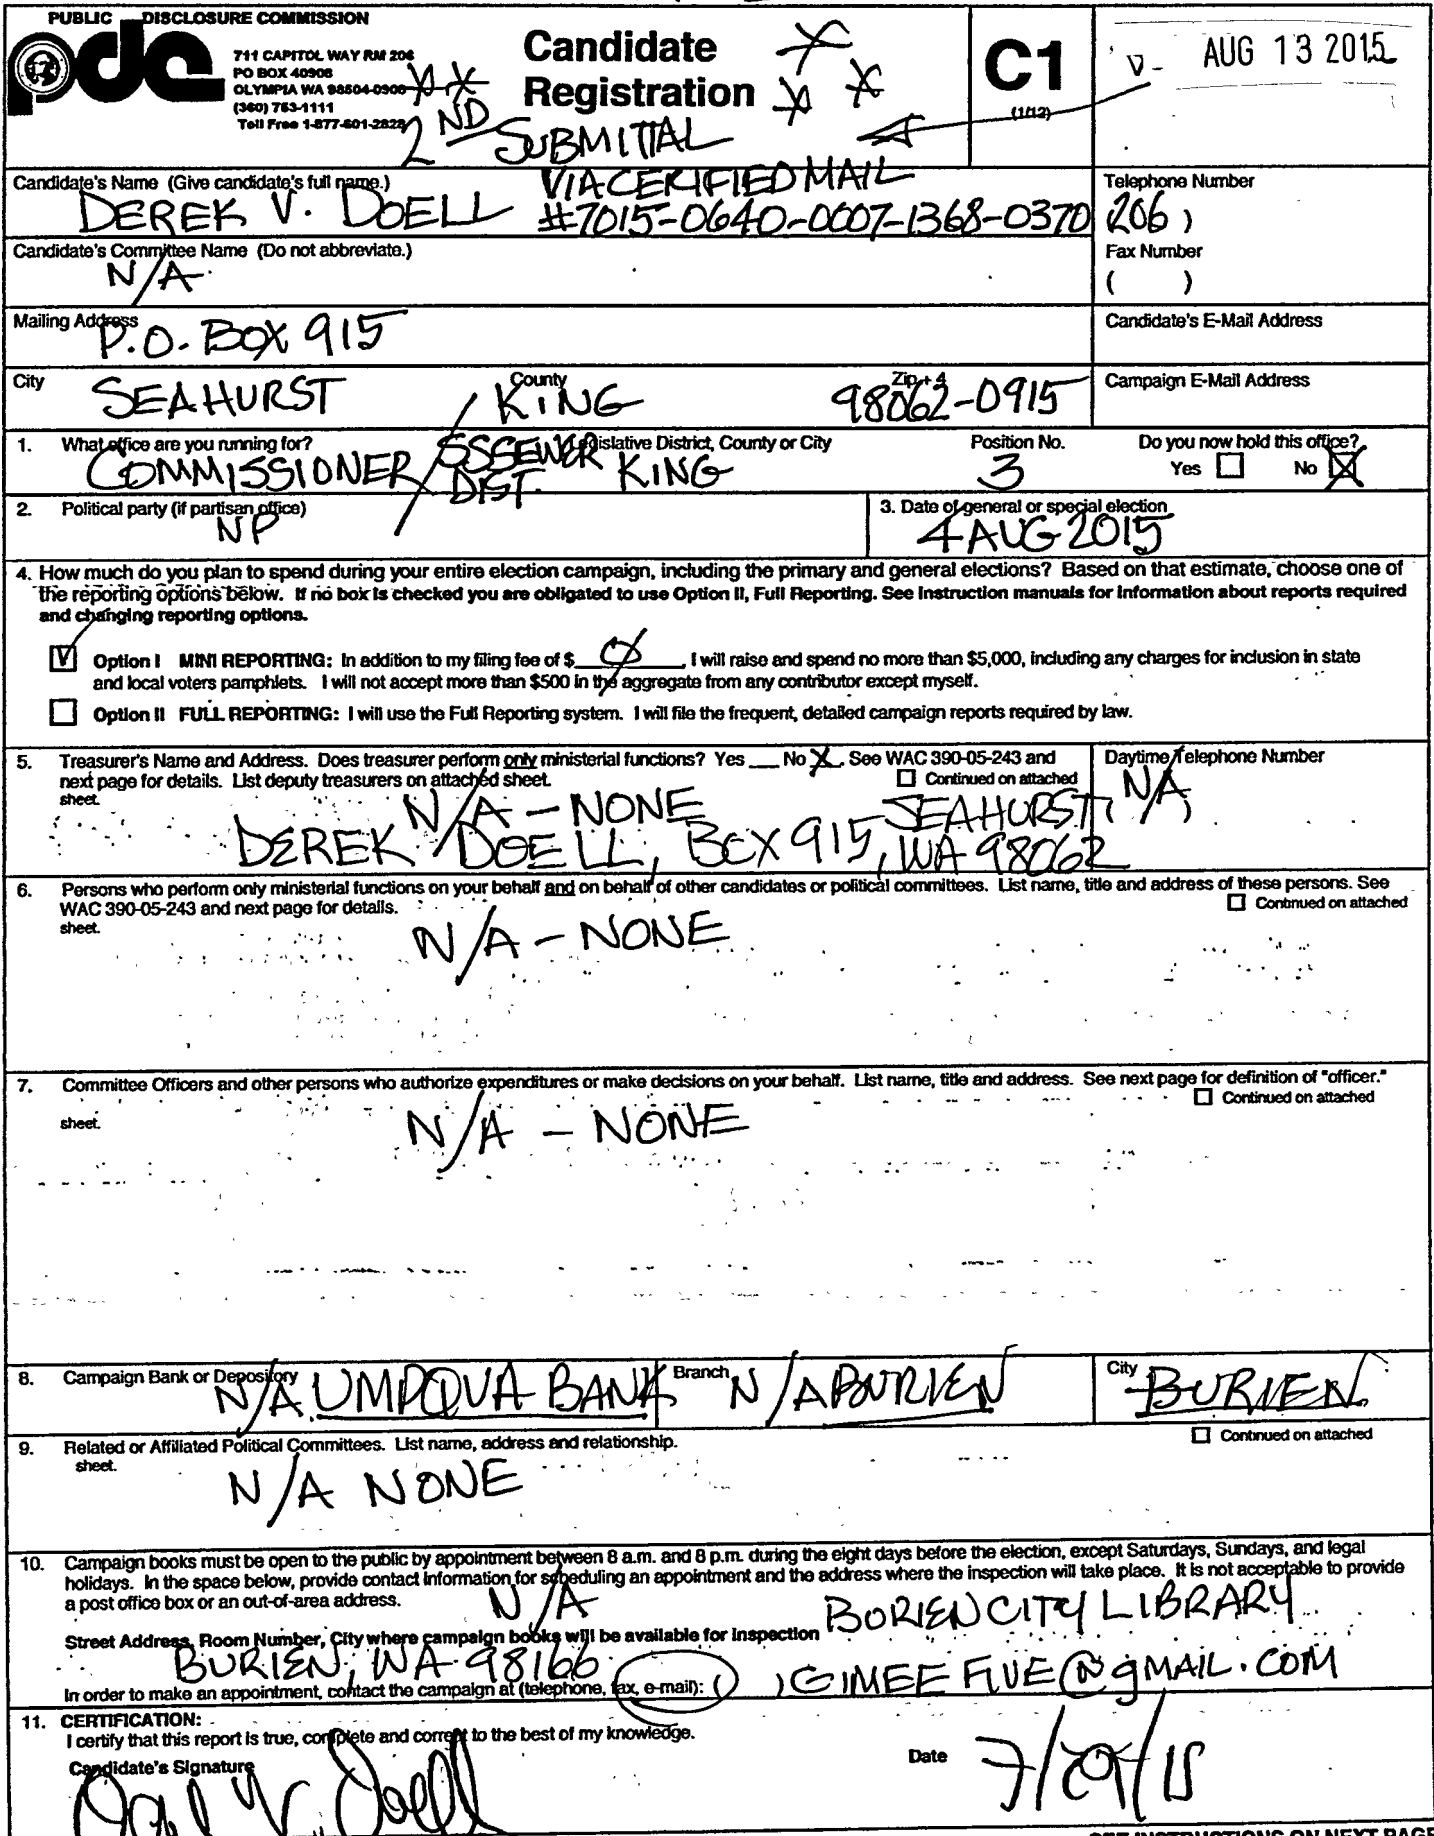 PUBLIC DISCLOSURE COMMISSION
pdc
711 CAPITOL WAY RM 206
PO BOX 40908
OLYMPIA WA 98504-0908
(360) 753-1111
Toll Free 1-877-601-2828
Candidate
Registration
2ND SUBMITTAL
C1
(1/12)
AUG 13 2015
VIA CERIFIED MAIL
#7015-0640-0007-1368-0370
Candidate's Name (Give candidate's full name.)
DEREK V. DOELL
Telephone Number
(206)
Candidate's Committee Name (Do not abbreviate.)
N/A
Fax Number
( )
Mailing Address
P.O. BOX 915
Candidate's E-Mail Address
City
SEAHURST
County
KING
Zip + 4
98062-0915
Campaign E-Mail Address
1. What office are you running for?
COMMISSIONER / SSSEWER DIST.
Legislative District, County or City
KING
Position No.
3
Do you now hold this office?
Yes No X
2. Political party (if partisan office)
NP
3. Date of general or special election
4 AUG 2015
4. How much do you plan to spend during your entire election campaign, including the primary and general elections? Based on that estimate, choose one of
the reporting options below. If no box is checked you are obligated to use Option II, Full Reporting. See Instruction manuals for information about reports required
and changing reporting options.
Option I MINI REPORTING: In addition to my filing fee of $ 0 , I will raise and spend no more than $5,000, including any charges for inclusion in state
and local voters pamphlets. I will not accept more than $500 in the aggregate from any contributor except myself.
Option II FULL REPORTING: I will use the Full Reporting system. I will file the frequent, detailed campaign reports required by law.
5. Treasurer's Name and Address. Does treasurer perform only ministerial functions? Yes ___ No X. See WAC 390-05-243 and
next page for details. List deputy treasurers on attached sheet. Continued on attached
sheet.
N/A - NONE
DEREK DOELL, BOX 915, SEAHURST, WA 98062
Daytime Telephone Number
N/A
( )
6. Persons who perform only ministerial functions on your behalf and on behalf of other candidates or political committees. List name, title and address of these persons. See
WAC 390-05-243 and next page for details. Continued on attached
sheet.
N/A - NONE
7. Committee Officers and other persons who authorize expenditures or make decisions on your behalf. List name, title and address. See next page for definition of "officer."
Continued on attached
sheet.
N/A - NONE
8. Campaign Bank or Depository
N/A UMPQUA BANK
Branch
N/A BURIEN
City
BURIEN
9. Related or Affiliated Political Committees. List name, address and relationship. Continued on attached
sheet.
N/A NONE
10. Campaign books must be open to the public by appointment between 8 a.m. and 8 p.m. during the eight days before the election, except Saturdays, Sundays, and legal
holidays. In the space below, provide contact information for scheduling an appointment and the address where the inspection will take place. It is not acceptable to provide
a post office box or an out-of-area address.
N/A
BORIEN CITY LIBRARY
Street Address, Room Number, City where campaign books will be available for inspection
BURIEN, WA 98166
In order to make an appointment, contact the campaign at (telephone, fax, e-mail): ( ) GIMEEFIVE@gMAIL.COM
11. CERTIFICATION:
I certify that this report is true, complete and correct to the best of my knowledge.
Candidate's Signature
Date 7/29/15
SEE INSTRUCTIONS ON NEXT PAGE